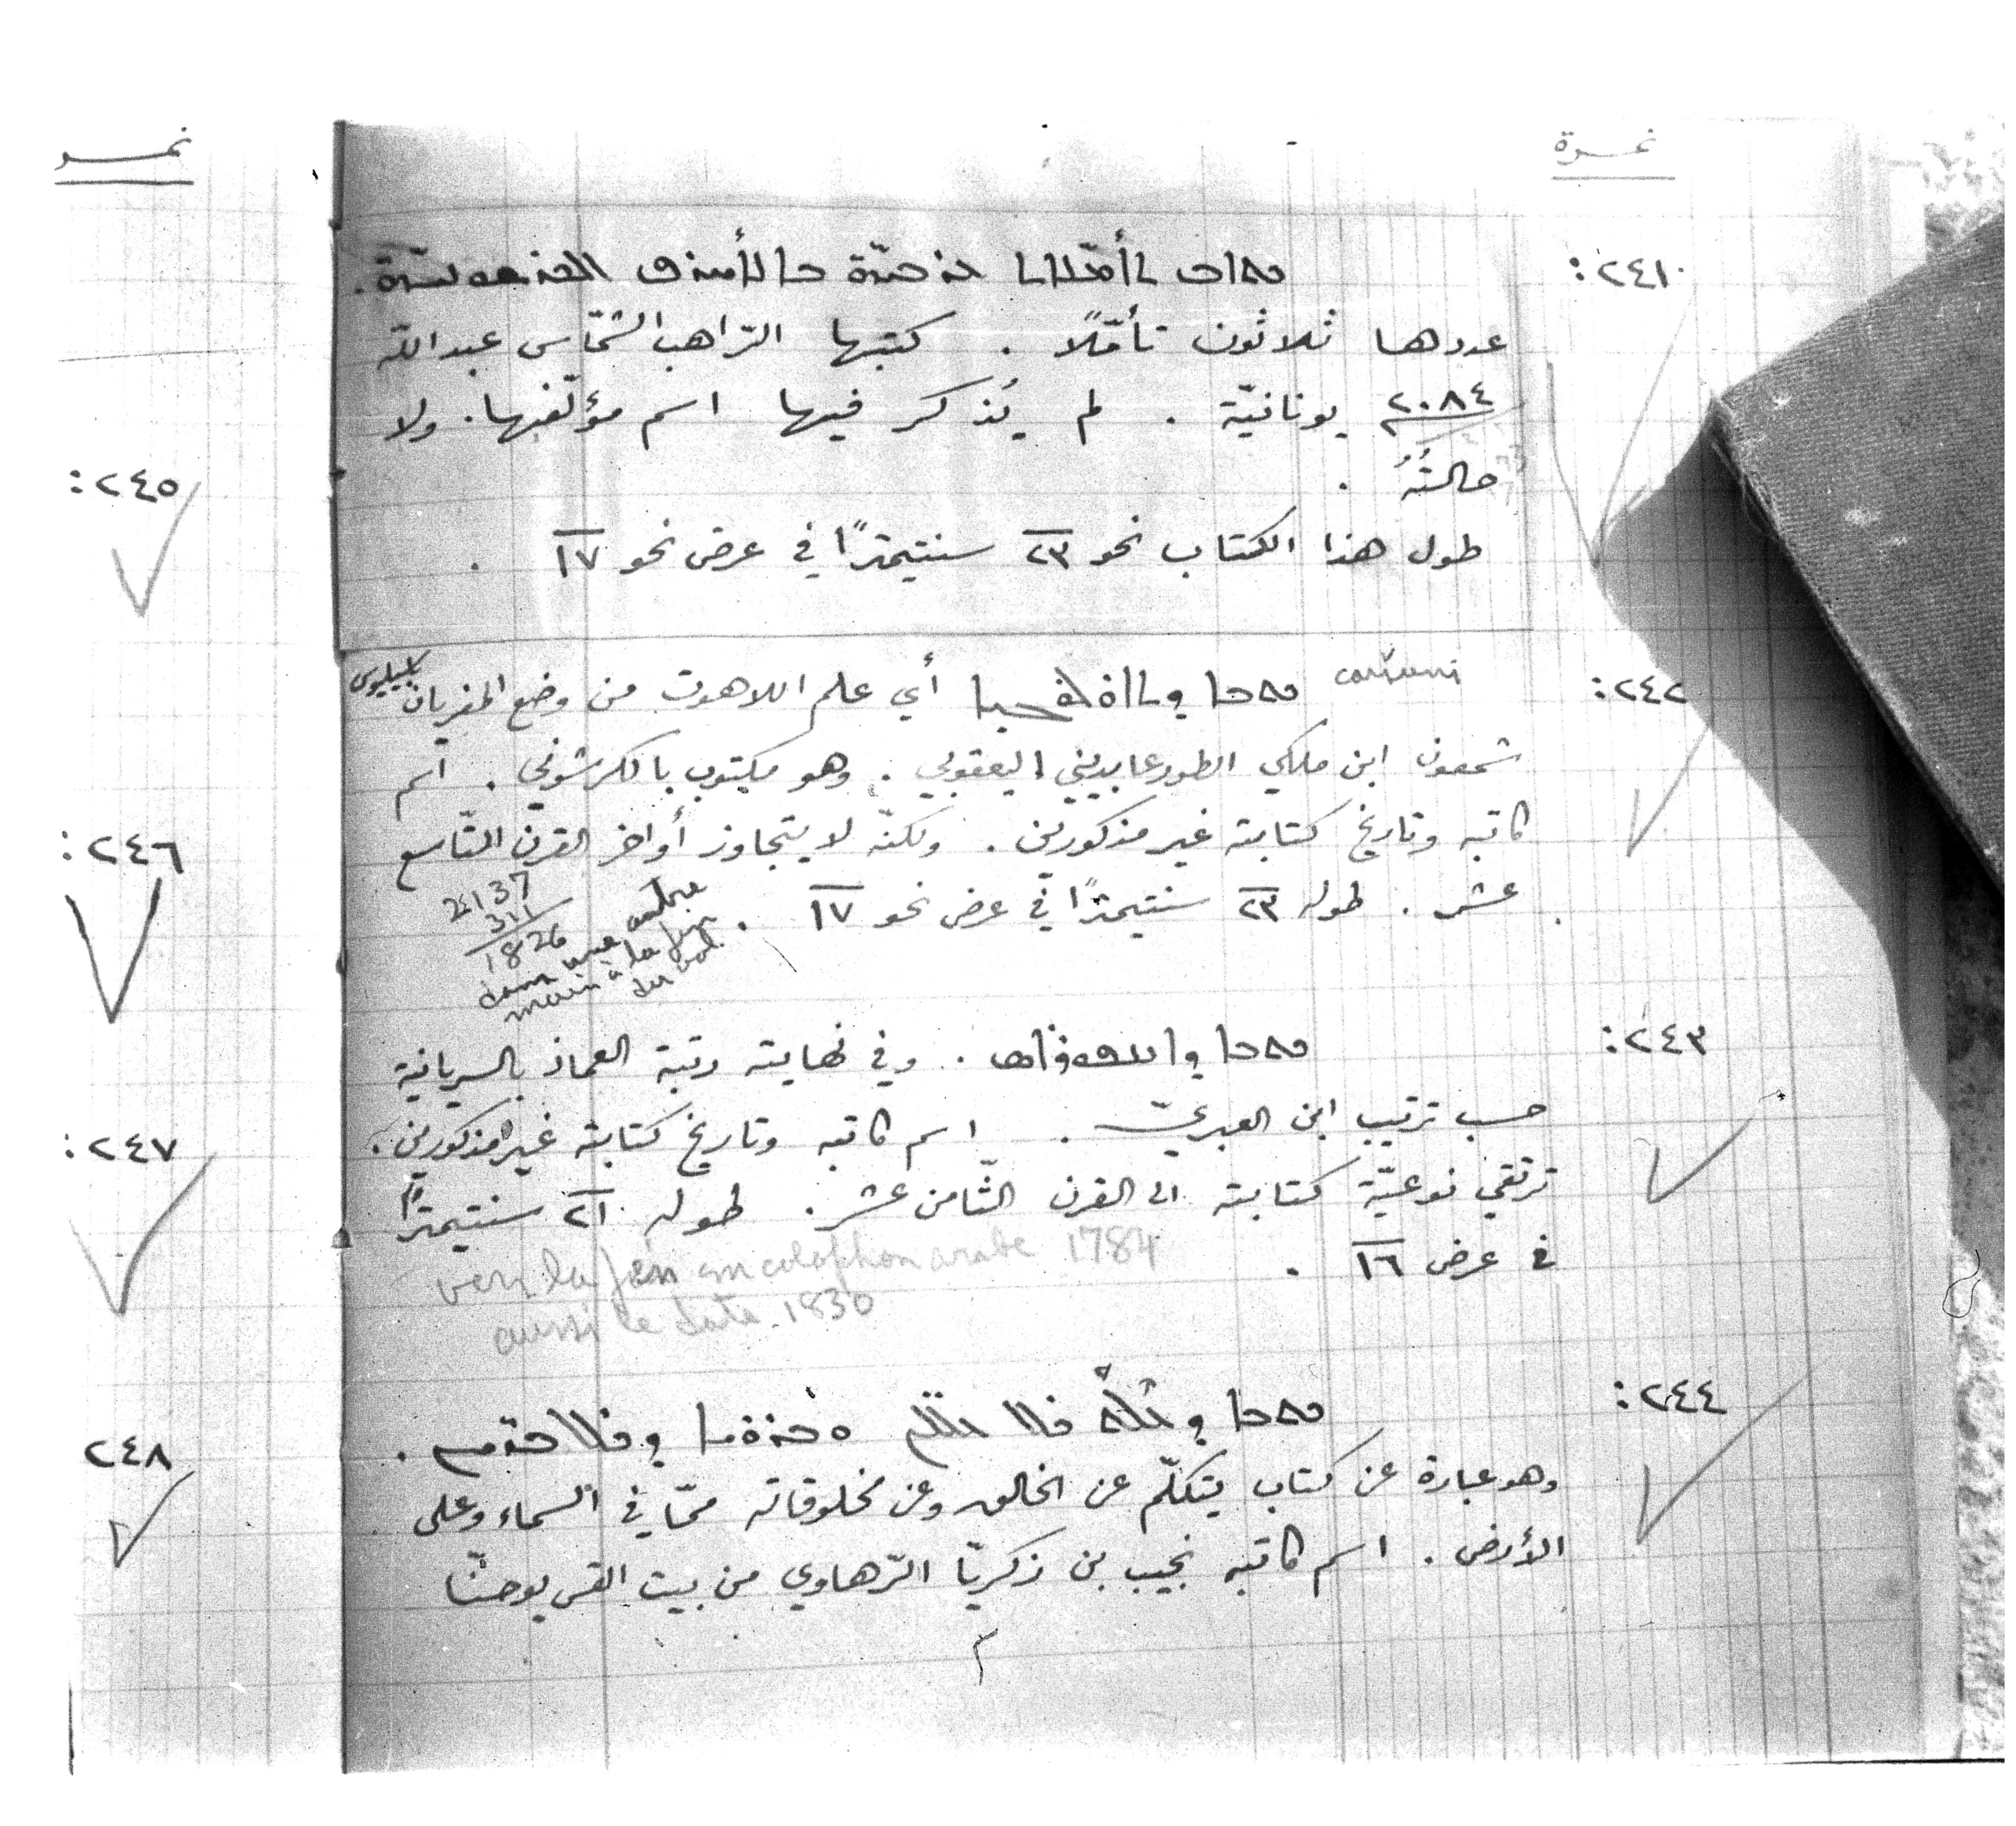 نمرة
٢٤١:
عددها ثلاثون تأمّلًا . كتبها الرّاهب الشمّاس عبد الله
٢٠٨٤ يونانيّة . لم يُذكر فيها اسم مؤلّفها . ولا
حالتُهُ .
طول هذا الكتاب نحو ٢٣ سنتيمترًا في عرض نحو ١٧ .
٢٤٢: ܟܬܒܐ ܕܬܐܘܠܘܓܝܐ أي علم اللاهوت من وضع المفريان
شمعون ابن ملكي الطورعابديني اليعقوبي . وهو مكتوب بالكرشوني . اسم
كاتبه وتاريخ كتابته غير مذكورين . ولكنّه لا يتجاوز أواخر القرن التّاسع
عشر . طوله ٢٣ سنتيمترًا في عرض نحو ١٧ .
2137
311
1826
dans une autre
main à la fin
du vol.
٢٤٣: ܟܬܒܐ . وفي نهايته رتبة العماذ بالسريانية
حسب ترتيب ابن العبريّ . اسم كاتبه وتاريخ كتابته غير مذكورين .
ترتقي نوعيّة كتابته الى القرن الثّامن عشر . طوله ٢١ سنتيمترًا
في عرض ١٦ .
vers la fin un colophon arabe 1784
aussi le date 1830
٢٤٤: ܟܬܒܐ ܕܥܠܬ ܟܠ ܥܠܠܢ ܘܒܪܘܝܐ ܕܟܠ ܒܪ̈ܝܢ .
وهو عبارة عن كتاب يتكلّم عن الخالق وعن مخلوقاته ممّا في السماء وعلى
الأرض . اسم كاتبه نجيب بن زكريّا الرّهاوي من بيت القس يوحنّا
٢٤٥:
٢٤٦:
٢٤٧:
٢٤٨